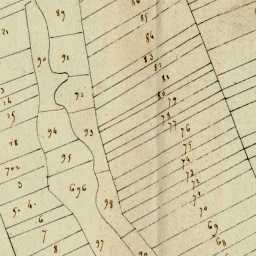 89
86
85
84
21
90
91
83
82
81
3
92
80
79
24
25
78
77
94
93
76
28
75
95
74
702
73
3
696
72
71
5. 4.
98
70
6
69
7
97
68
8